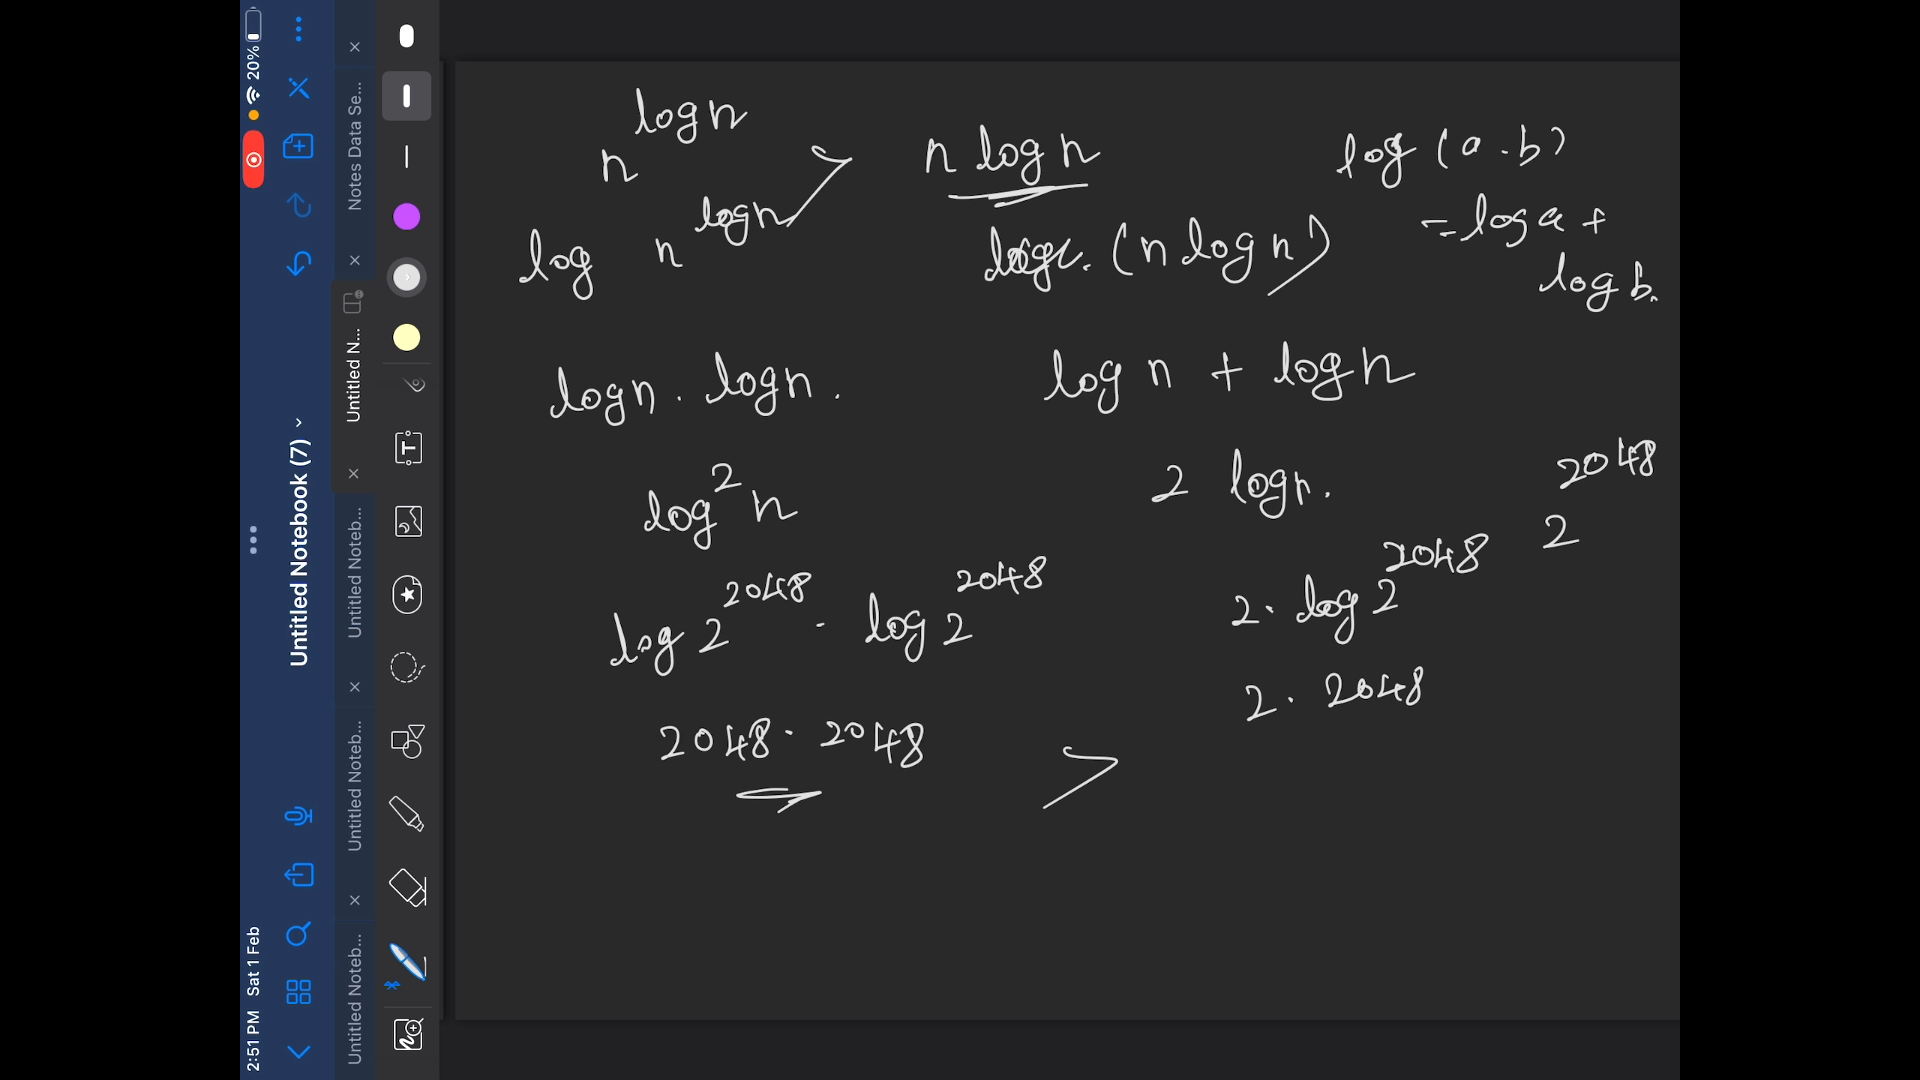 2:51 PM Sat 1 Feb
20%
Untitled Notebook (7)
Untitled Noteb...
Untitled Noteb...
Untitled Noteb...
Untitled N...
Notes Data Se...
T
n^log n > n log n
log (a . b)
= log a +
log b.
log n^log n
(n log n)
log n . log n .
log n + log n
log² n
2 log n .
2^2048
log 2^2048 . log 2^2048
2 . log 2^2048
2 . 2048
2048 . 2048
>